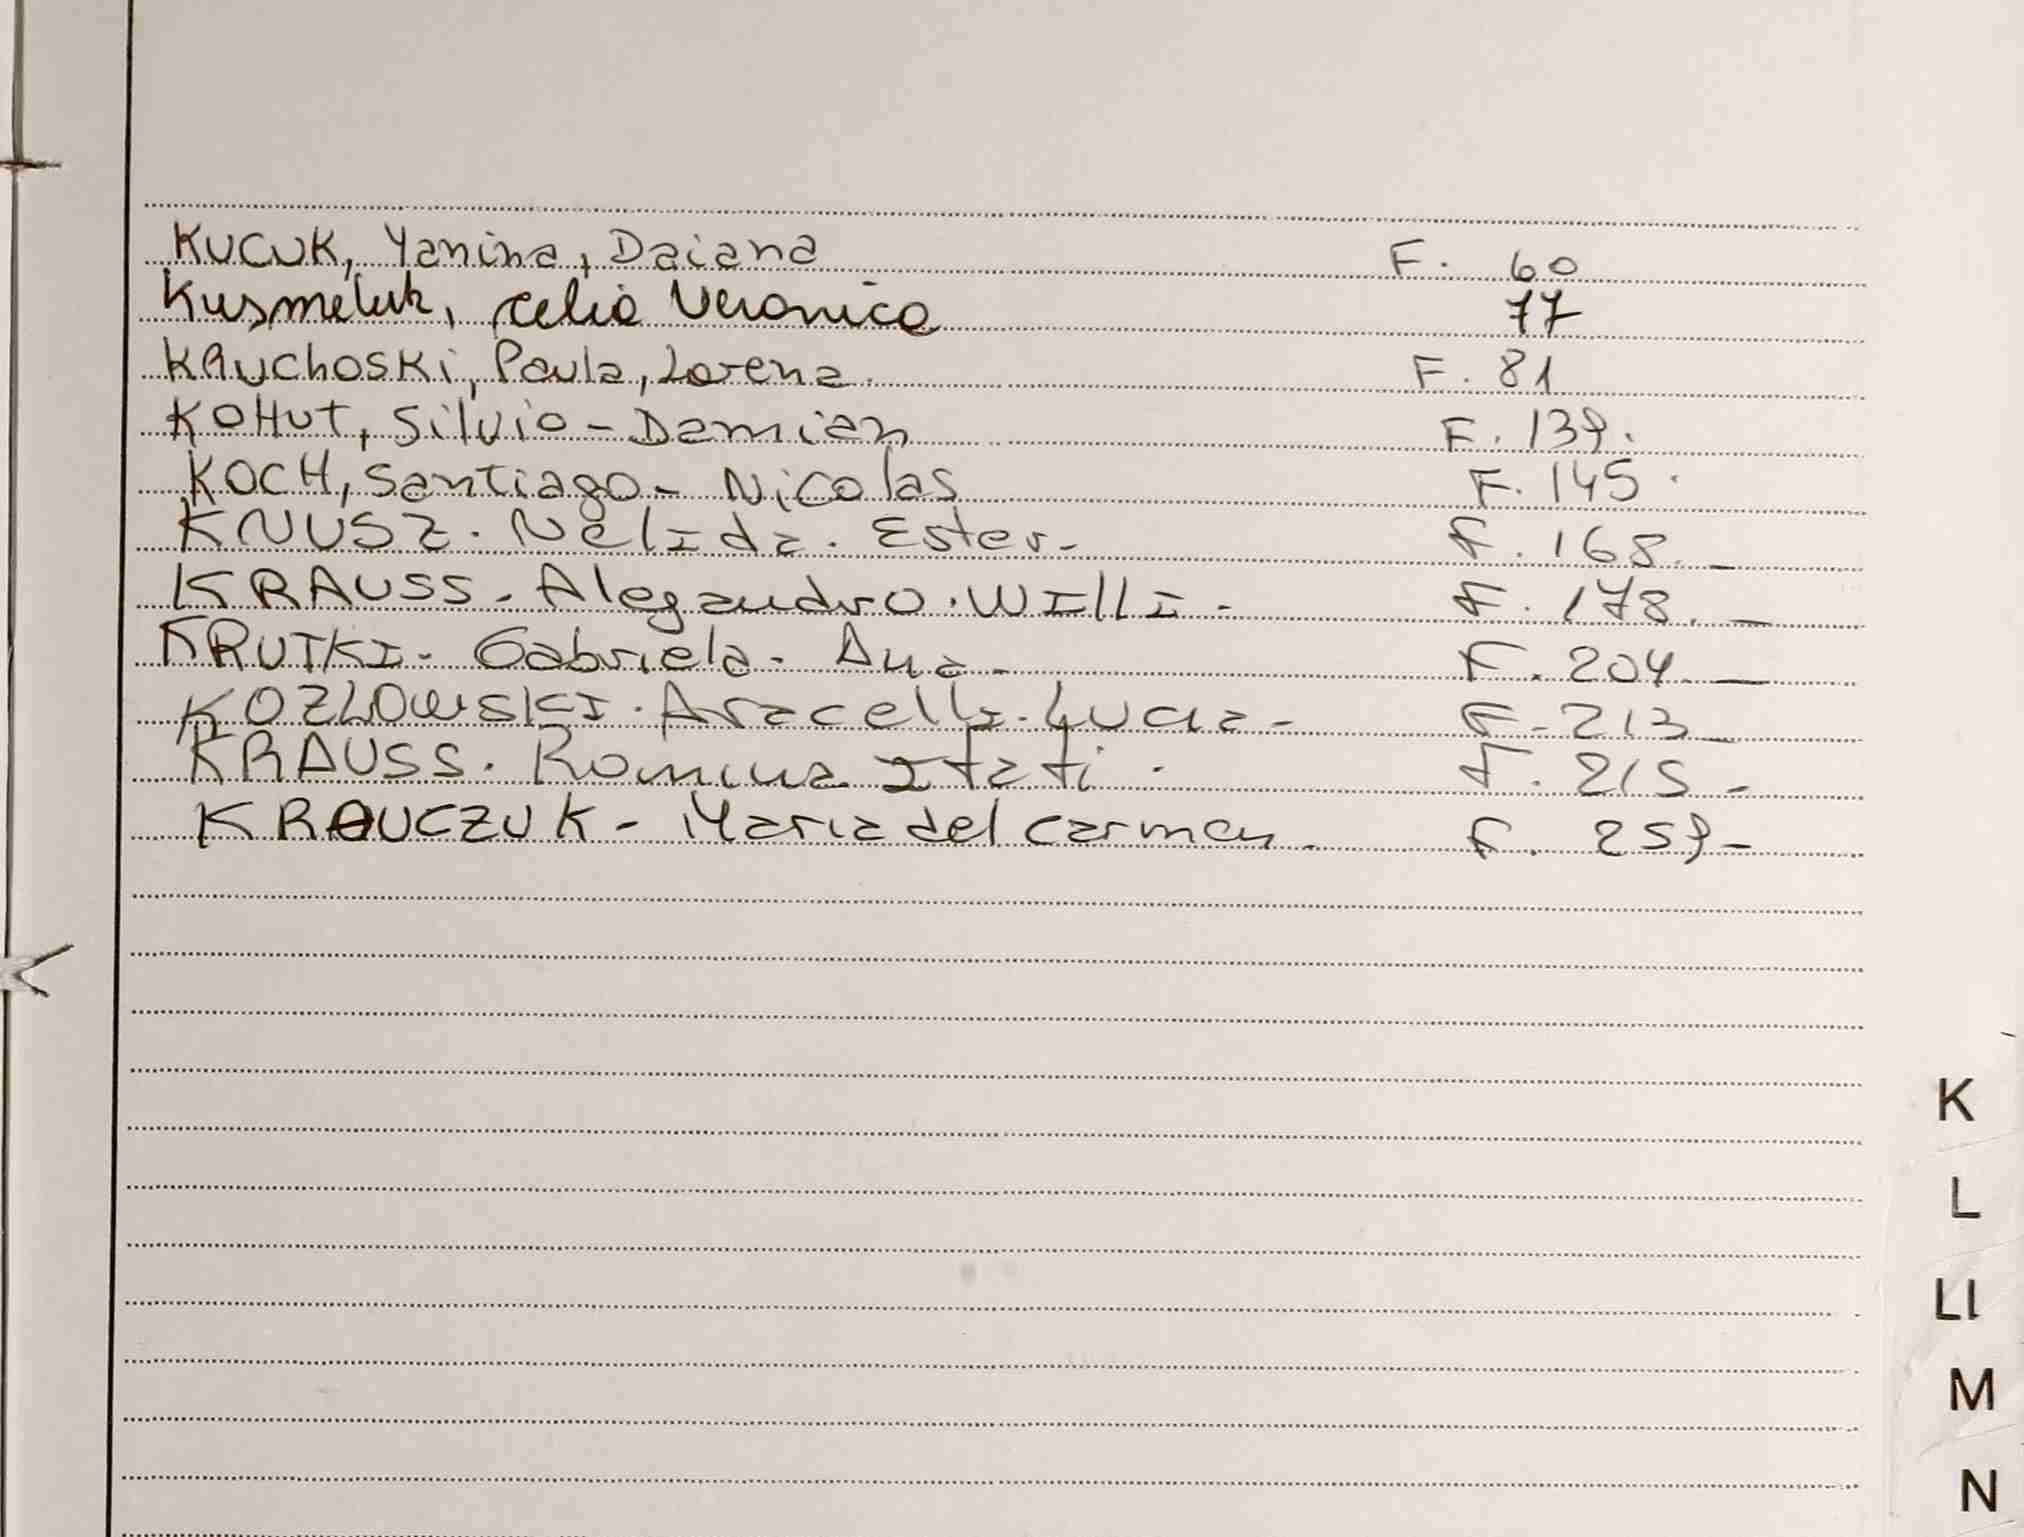 KUCUK, Yanina, Daiana F. 60
Kusmeluk, Celia Veronica 77
KRUchoSKi, Paula, Lorena. F. 81
KOHUT, Silvio - Damian F. 139.
KOCH, Santiago - Nicolas F. 145.
KNUSZ. Nelida. Ester- F. 168. _
KRAUSS - Alegandro. Willi - F. 178. _
KRUTKI - Gabriela - Ana - F. 204 _
KOZLOWSKI. Aracelli - Lucia - F - 213 _
KRAUSS. Romina Itati . F. 215 -
KRAUCZUK - Maria del Carmen . F. 259 -
K
L
Ll
M
N